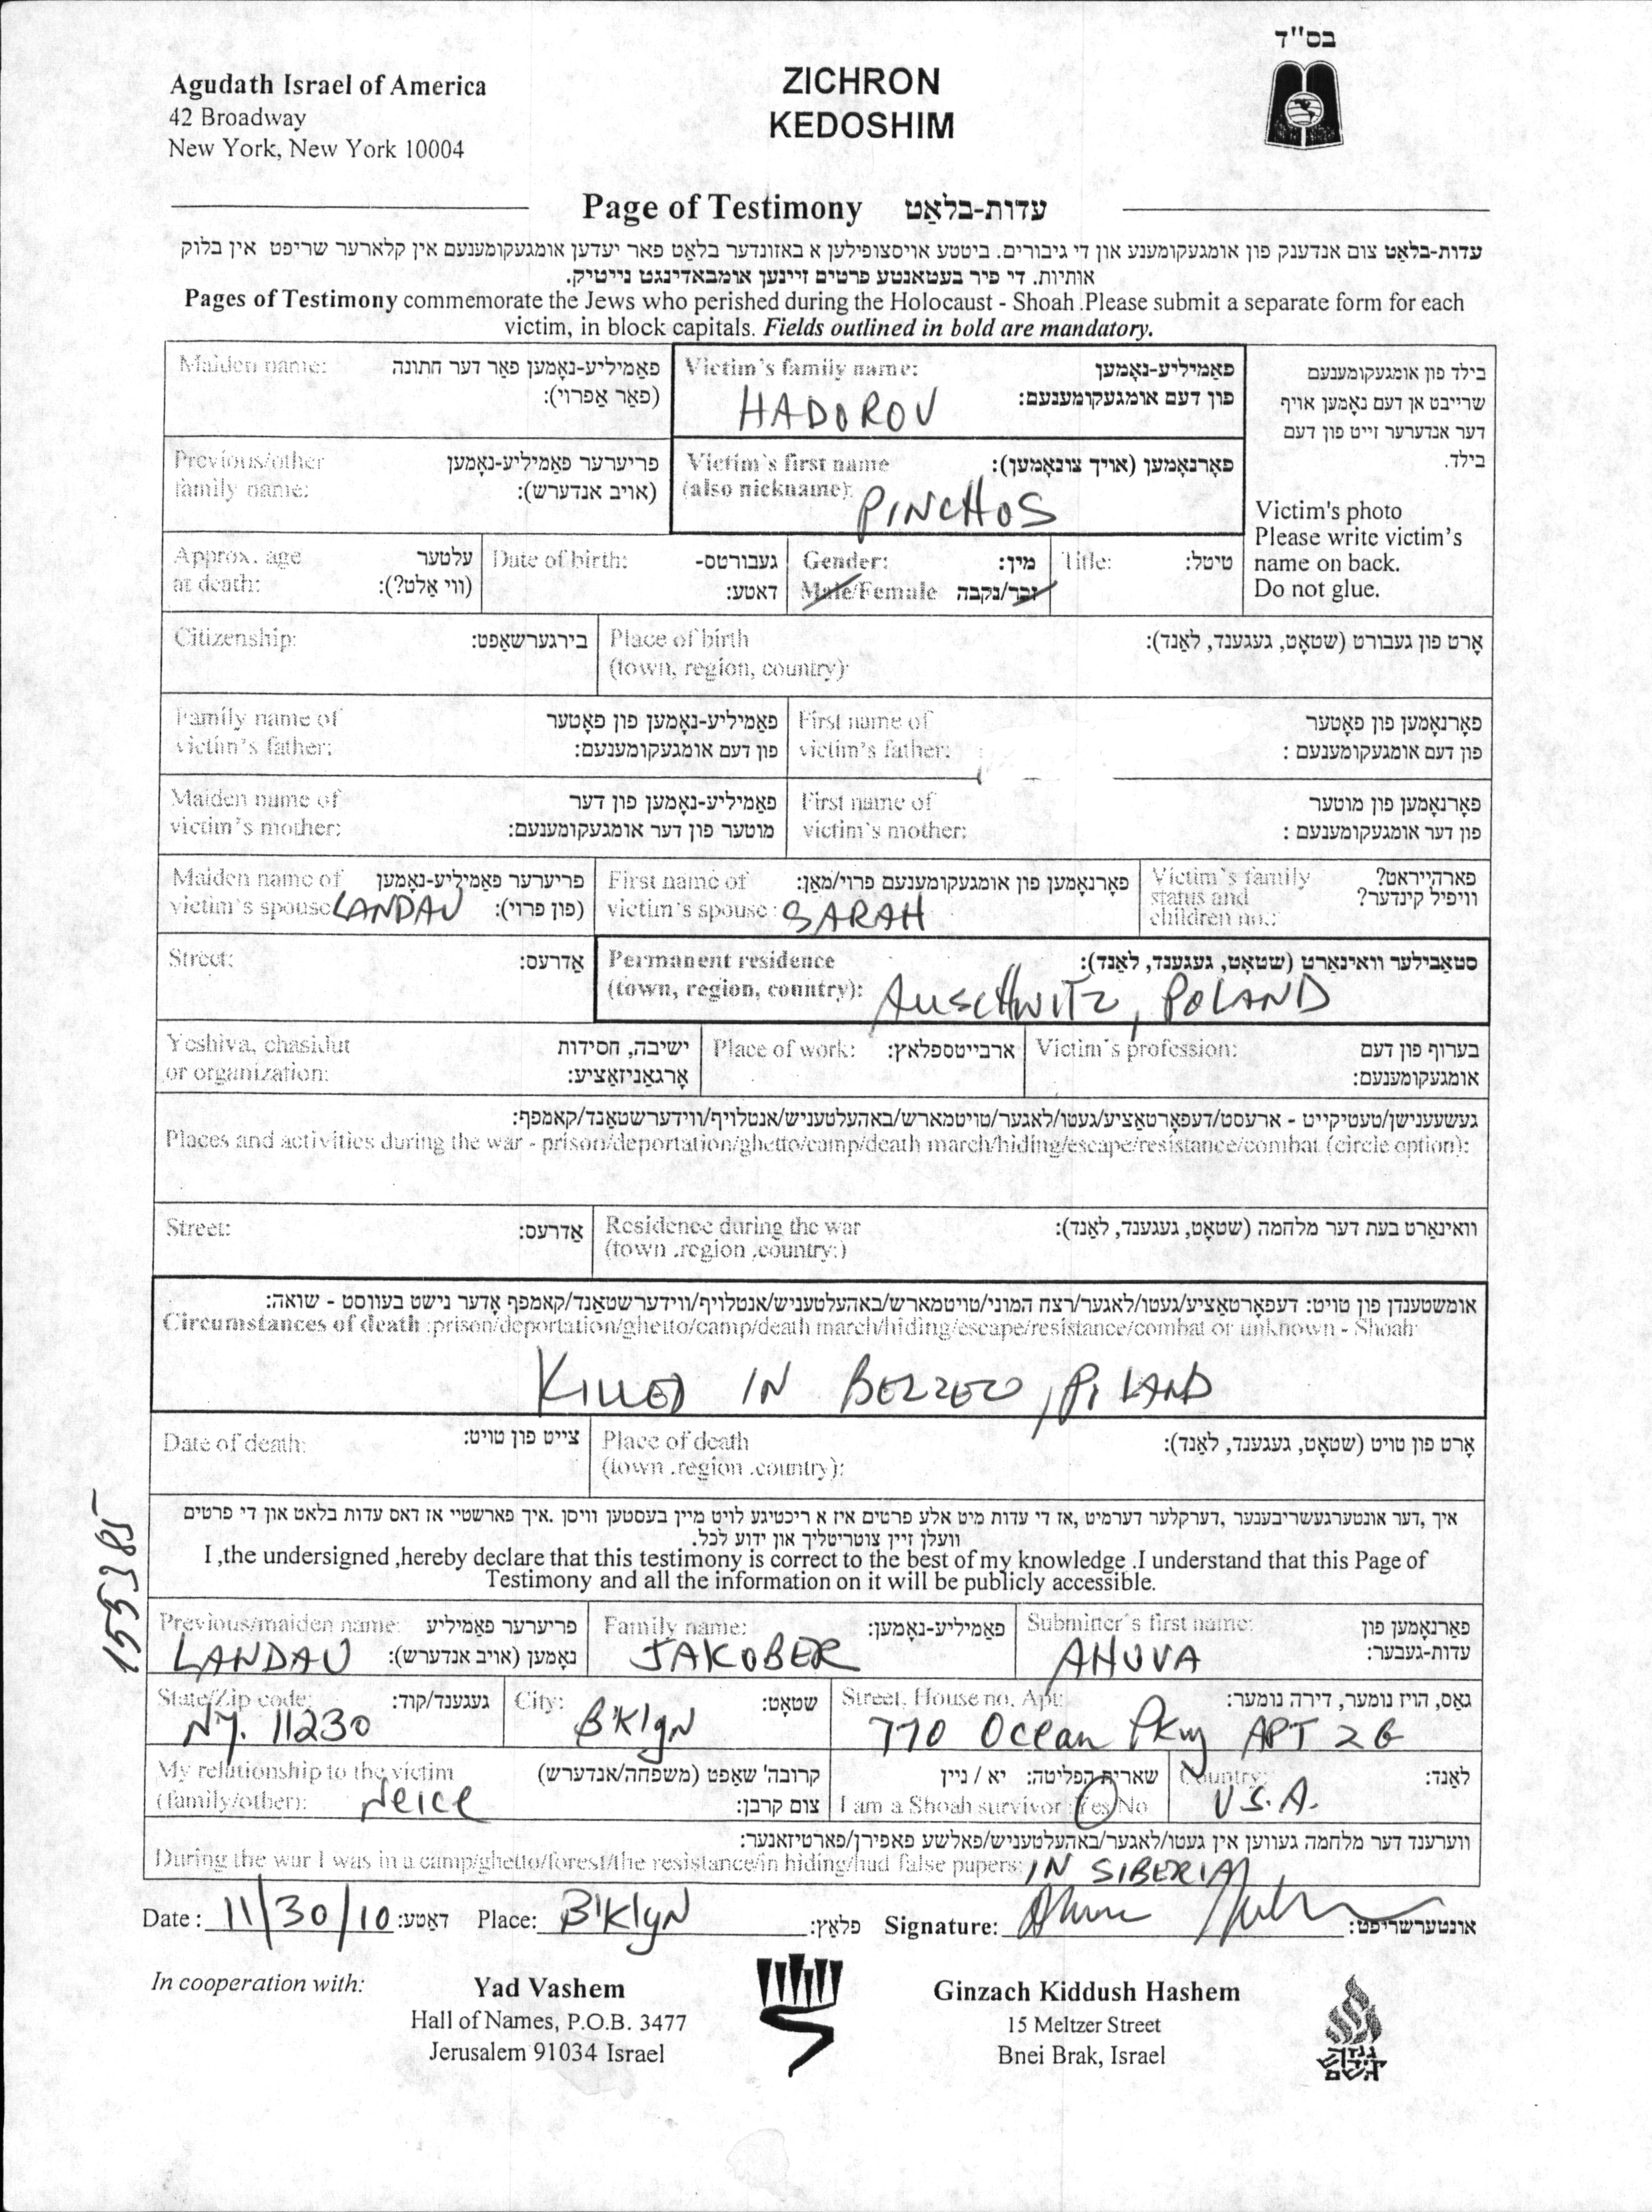 בס"ד
Agudath Israel of America
42 Broadway
New York, New York 10004
ZICHRON
KEDOSHIM
Page of Testimony עדות-בלאַט
עדות-בלאַט צום אנדענק פון אומגעקומענע און די גיבורים. ביטטע אויסצופילען א באזונדער בלאַט פאר יעדען אומגעקומענעם אין קלארער שריפט אין בלוק
אותיות. די פיר בעטאנטע פרטים זיינען אומבאדינגט נייטיק.
Pages of Testimony commemorate the Jews who perished during the Holocaust - Shoah .Please submit a separate form for each
victim, in block capitals. Fields outlined in bold are mandatory.
Maiden name: פאַמיליע-נאָמען פאר דער חתונה
(פאַר אַפרוי):
Victim's family name: פאַמיליע-נאָמען
פון דעם אומגעקומענעם:
HADOROV
בילד פון אומגעקומענעם
שרייבט אן דעם נאָמען אויף
דער אנדערער זייט פון דעם
בילד.
Victim's photo
Please write victim's
name on back.
Do not glue.
Previous/other פריערער פאַמיליע-נאָמען
family name: (אויב אנדערש):
Victim's first name פאָרנאָמען (אויך צונאָמען):
(also nickname):
PINCHOS
Approx. age עלטער
at death: (ווי אַלט?):
Date of birth: געבורטס-
דאטע:
Gender: מין:
Male/Female זכר/נקבה
Title: טיטל:
Citizenship: בירגערשאַפט:
Place of birth אָרט פון געבורט (שטאָט, געגענד, לאַנד):
(town, region, country):
Family name of פאַמיליע-נאָמען פון פאָטער
victim's father: פון דעם אומגעקומענעם:
First name of פאָרנאָמען פון פאָטער
victim's father: פון דעם אומגעקומענעם :
Maiden name of פאַמיליע-נאָמען פון דער
victim's mother: מוטער פון דער אומגעקומענעם:
First name of פאָרנאָמען פון מוטער
victim's mother: פון דער אומגעקומענעם :
Maiden name of פריערער פאַמיליע-נאָמען
victim's spouse LANDAU (פון פרוי):
First name of פאָרנאָמען פון אומגעקומענעם פרוי/מאַן:
victim's spouse: SARAH
Victim's family פארהייראט?
status and וויפיל קינדער?
children no.:
Street: אַדרעס:
Permanent residence סטאַבילער וואוינאָרט (שטאָט, געגענד, לאַנד):
(town, region, country): AUSCHWITZ, POLAND
Yeshiva, chasidut ישיבה, חסידות
or organization: אָרגאַניזאַציע:
Place of work: ארבייטספלאץ:
Victim's profession: בערוף פון דעם
אומגעקומענעם:
געשעענישן/טעטיקייט - ארעסט/דעפאָרטאַציע/געטו/לאגער/טויטמארש/באהעלטעניש/אנטלויף/ווידערשטאַנד/קאמפף:
Places and activities during the war - prison/deportation/ghetto/camp/death march/hiding/escape/resistance/combat (circle option):
Street: אַדרעס:
Residence during the war וואוינאָרט בעת דער מלחמה (שטאָט, געגענד, לאַנד):
(town .region .country:)
אומשטענדן פון טויט: דעפאָרטאַציע/געטו/לאגער/רצח המוני/טויטמארש/באהעלטעניש/אנטלויף/ווידערשטאַנד/קאמפף אָדער נישט בעוווסט - שואה:
Circumstances of death :prison/deportation/ghetto/camp/death march/hiding/escape/resistance/combat or unknown - Shoah:
KILLED IN BELZEC, POLAND
Date of death: צייט פון טויט:
Place of death אָרט פון טויט (שטאָט, געגענד, לאַנד):
(town .region .country):
איך ,דער אונטערגעשריבענער ,דערקלער דערמיט ,אז די עדות מיט אלע פרטים איז א ריכטיגע לויט מיין בעסטען וויסן .איך פארשטיי אז דאס עדות בלאט און די פרטים
וועלן זיין צוטריטליך און ידוע לכל.
I ,the undersigned ,hereby declare that this testimony is correct to the best of my knowledge .I understand that this Page of
Testimony and all the information on it will be publicly accessible.
155385
Previous/maiden name: פריערער פאַמיליע
LANDAU נאָמען (אויב אנדערש):
Family name: פאַמיליע-נאָמען:
JAKOBER
Submitter's first name: פאָרנאָמען פון
עדות-געבער:
AHUVA
State/Zip code: געגענד/קוד:
NY. 11230
City: שטאָט:
B'Klyn
Street, House no, Apt: גאַס, הויז נומער, דירה נומער:
770 Ocean Pkwy APT 2G
My relationship to the victim קרובה' שאַפט (משפחה/אנדערש)
(family/other): Neice צום קרבן:
שארית הפליטה: יא / ניין
I am a Shoah survivor: Yes/No
Country: לאַנד:
U.S.A.
ווערענד דער מלחמה געווען אין געטו/לאגער/באהעלטעניש/פאלשע פאפירן/פארטיזאנער:
During the war I was in a camp/ghetto/forest/the resistance/in hiding/had false papers: IN SIBERIA
Date : 11/30/10 דאַטע: Place: B'Klyn פלאַץ: Signature: אונטערשריפט:
In cooperation with:
Yad Vashem
Hall of Names, P.O.B. 3477
Jerusalem 91034 Israel
Ginzach Kiddush Hashem
15 Meltzer Street
Bnei Brak, Israel
גנזך
קידוש
השם